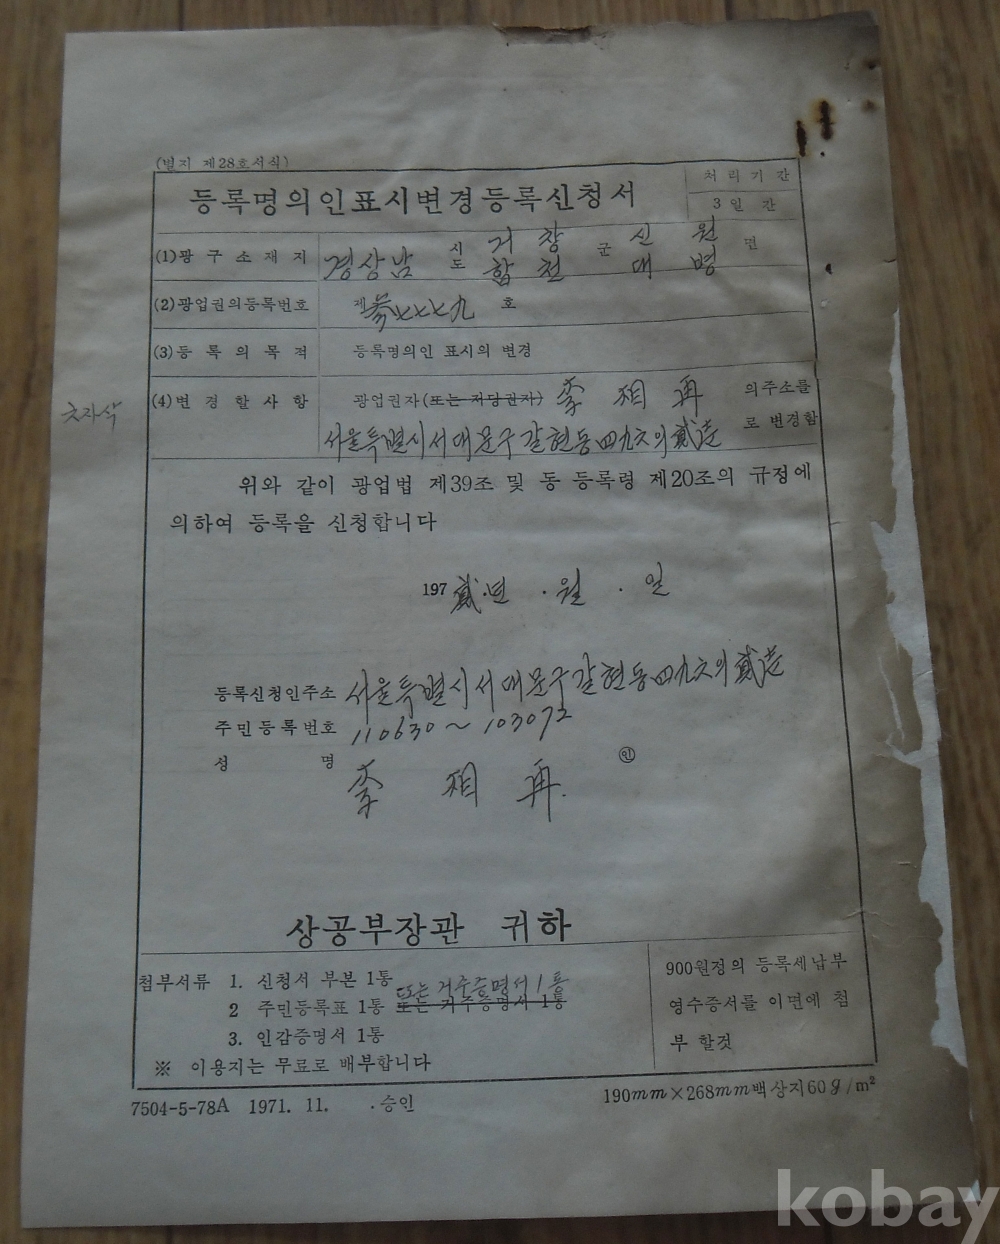 (별지 제28호서식)
등록명의인표시변경등록신청서
처리기간
3일간
(1)광구소재지 경상남 시도 거창 군 신원 면
합천 대병
(2)광업권의등록번호 제 参七七七九 호
(3)등록의목적 등록명의인 표시의 변경
(4)변경할사항 광업권자(또는 저당권자) 李相再 의주소를
서울특별시서대문구갈현동四九六의貳 로 변경함
위와 같이 광업법 제39조 및 동 등록령 제20조의 규정에
의하여 등록을 신청합니다
197貳년 . 월 . 일
등록신청인주소 서울특별시서대문구갈현동四九六의貳
주민등록번호 110630~103072
성 명 李相再 ㊞
상공부장관 귀하
첨부서류 1. 신청서 부본 1통
또는 거주증명서 1통
2 주민등록표 1통 또는 거주증명서 1통
3. 인감증명서 1통
※ 이용지는 무료로 배부합니다
900원정의 등록세납부
영수증서를 이면에 첨
부 할것
7504-5-78A 1971. 11. .승인
190mm×268mm백상지60g/m²
kobay